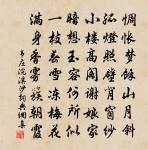 惆悵夢餘山月斜
孤燈照壁背窗紗
小樓高閣謝娘家
暗想玉容何所似
一枝春雪凍梅花
滿身香霧簇朝霞
韋莊浣溪沙詞